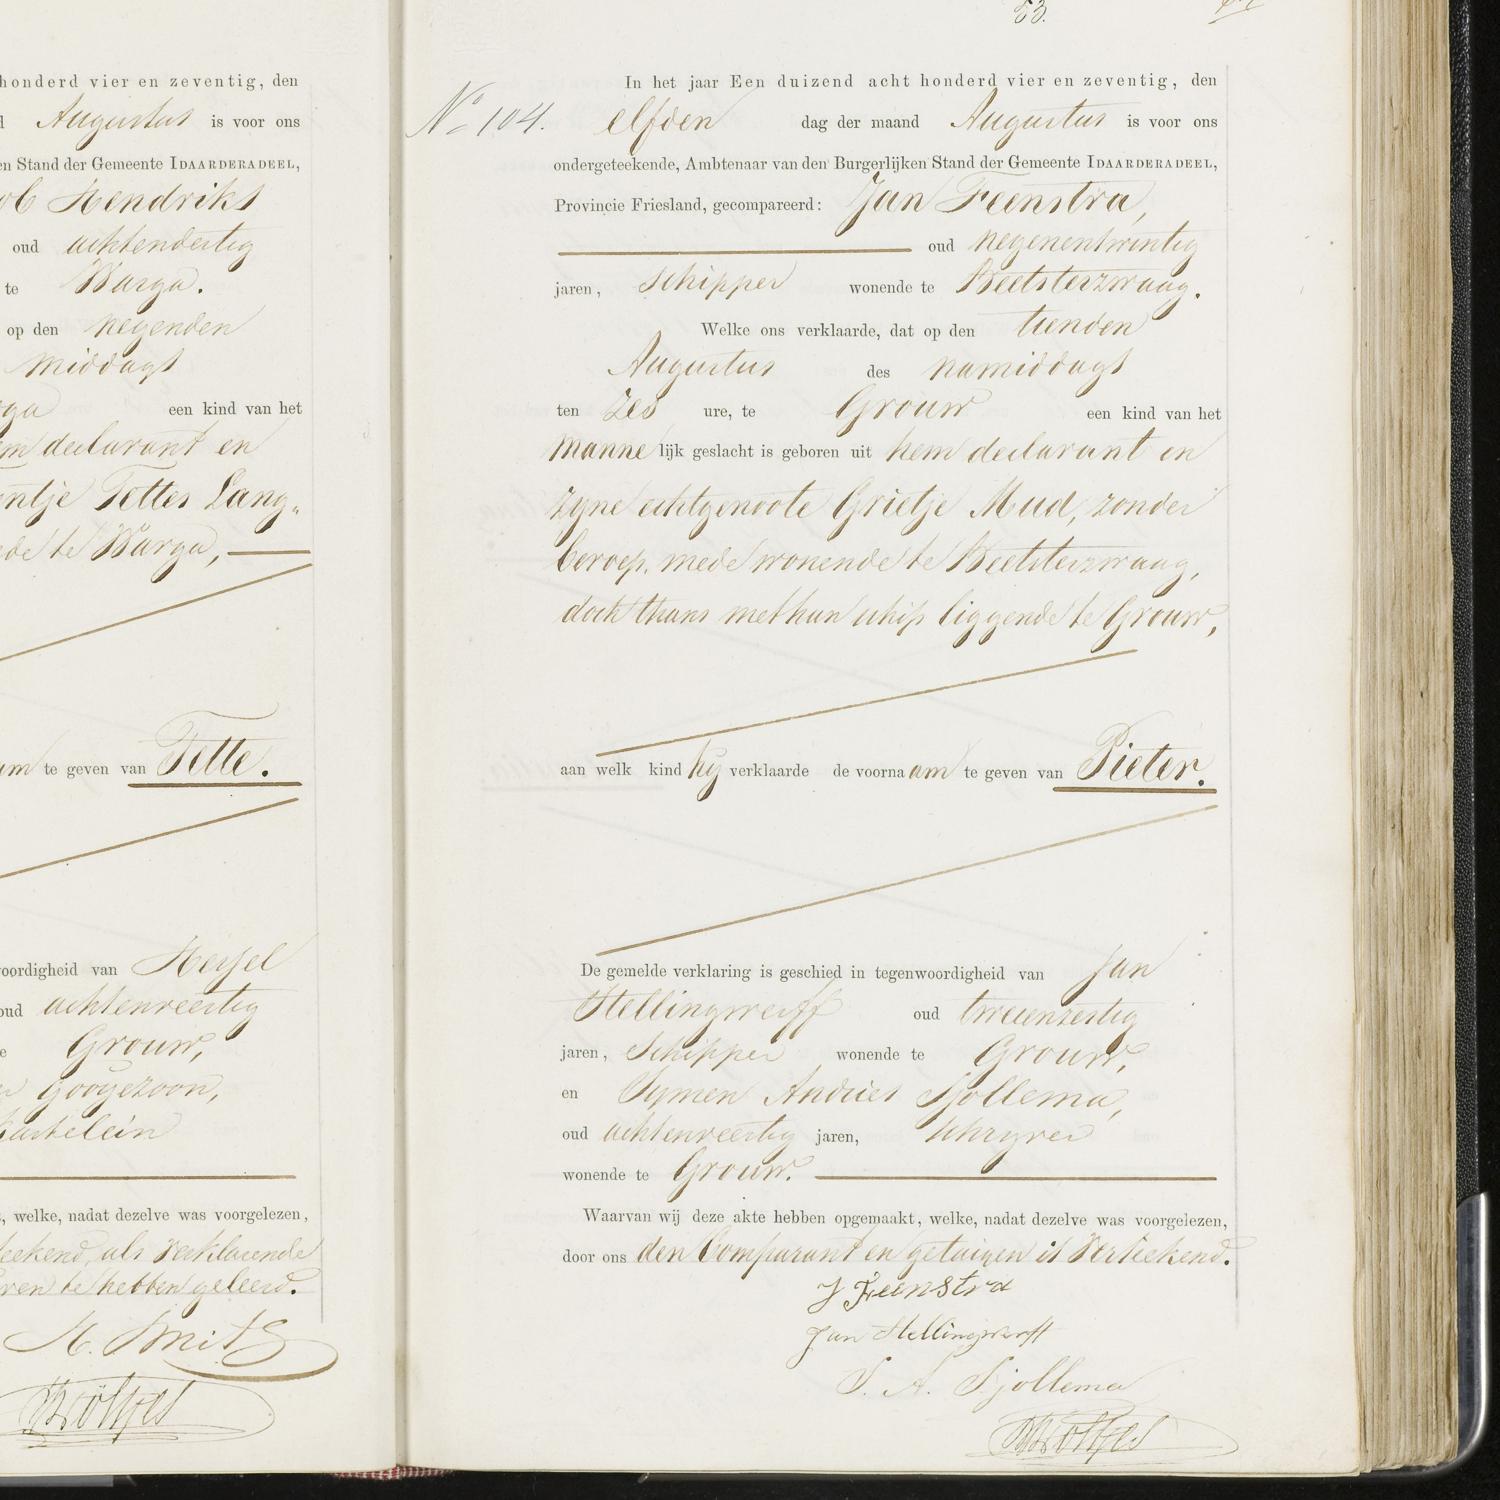 honderd vier en zeventig, den
Augustus is voor ons
en Stand der Gemeente IDAARDERADEEL,
ob Hendriks
oud achtendertig
te Warga.
op den negenden
middags
rga een kind van het
em declarant en
entje Tettes Lang„
ede te Warga,
am te geven van Tette.
voordigheid van Hessel
oud achtenveertig
e Grouw,
Googezoon,
Kastelein
, welke, nadat dezelve was voorgelezen,
teekend, als verklarende
ven te hebben geleerd.
H. Smits
53.
No 104.
In het jaar Een duizend acht honderd vier en zeventig, den
elfden dag der maand Augustus is voor ons
ondergeteekende, Ambtenaar van den Burgerlijken Stand der Gemeente IDAARDERADEEL,
Provincie Friesland, gecompareerd: Jan Feenstra,
oud negenentwintig
jaren, schipper wonende te Beetsterzwaag.
Welke ons verklaarde, dat op den tienden
Augustus des namiddags
ten zes ure, te Grouw een kind van het
mannelijk geslacht is geboren uit hem declarant en
zyne echtgenoote Grietje Mud, zonder
beroep, mede wonende te Beetsterzwaag,
doch thans met hun schip liggende te Grouw,
aan welk kind hy verklaarde de voornaam te geven van Pieter.
De gemelde verklaring is geschied in tegenwoordigheid van Jan
Stellingwerff oud tweeenzestig
jaren, Schipper wonende te Grouw,
en Symen Andries Sjollema,
oud achtenveertig jaren, schryver
wonende te Grouw.
Waarvan wij deze akte hebben opgemaakt, welke, nadat dezelve was voorgelezen,
door ons den Comparant en getuigen is verteekend.
J Feenstra
Jan Stellingwerff
S. A. Sjollema